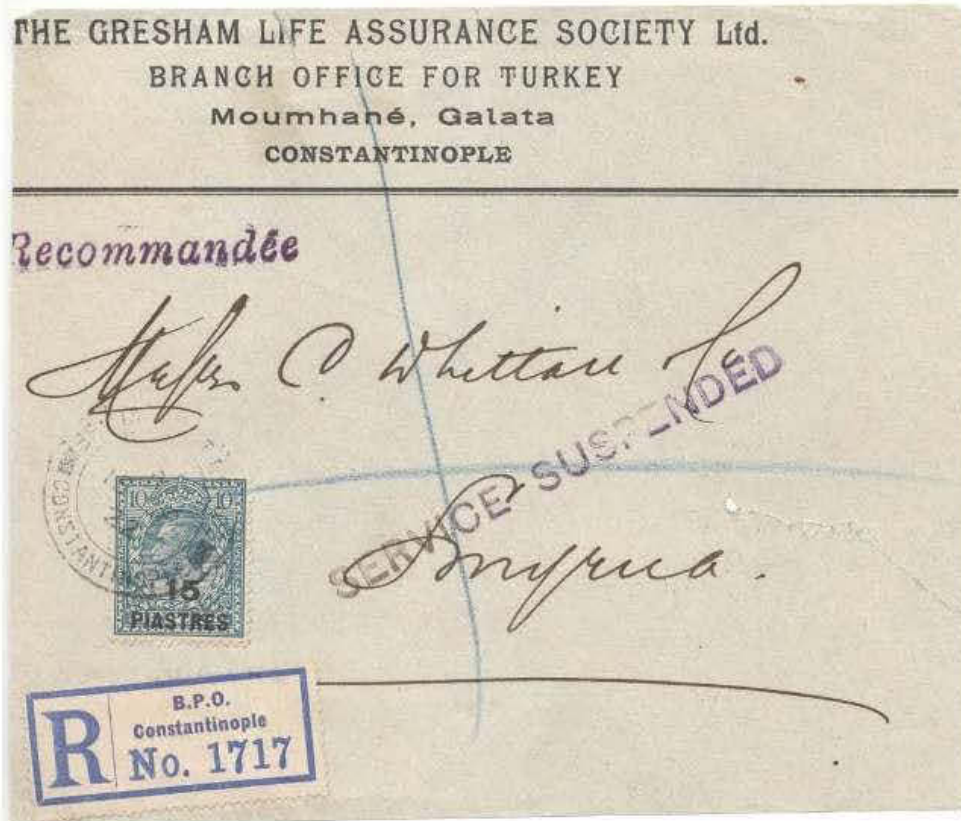 THE GRESHAM LIFE ASSURANCE SOCIETY Ltd.
BRANCH OFFICE FOR TURKEY
Moumhané, Galata
CONSTANTINOPLE
Recommandée
Messrs C Whittall Co
SERVICE SUSPENDED
Smyrna.
10 10
15
PIASTRES
R
B.P.O.
Constantinople
No. 1717